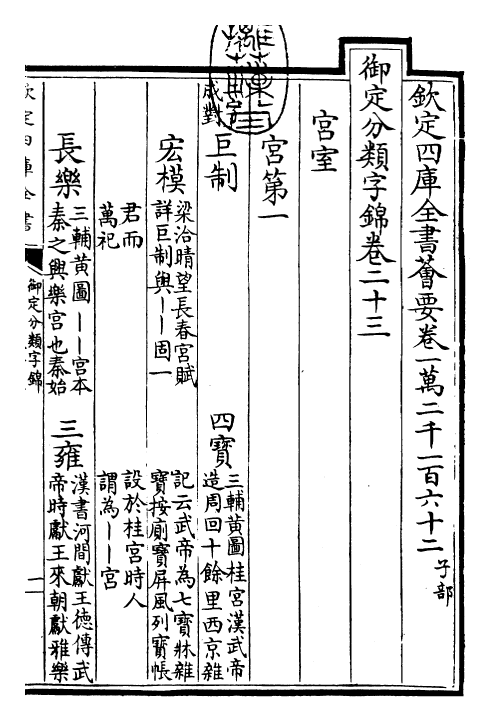 欽定四庫全書薈要卷一萬二千一百六十二 子部
御定分類字錦卷二十三
宮室
宮第一
二字
成對
巨制
四寶 三輔黄圖桂宮漢武帝
造周回十餘里西京雜
宏模 梁洽晴望長春宮賦
詳巨制與——固一
記云武帝為七寶牀雜
寶按廁寶屏風列寶帳
君而
萬祀
設於桂宮時人
謂為——宮
長樂 三輔黄圖——宮本
秦之興樂宮也秦始
三雍 漢書河間獻王德傳武
帝時獻王來朝獻雅樂
欽定四庫全書
御定分類字錦
一